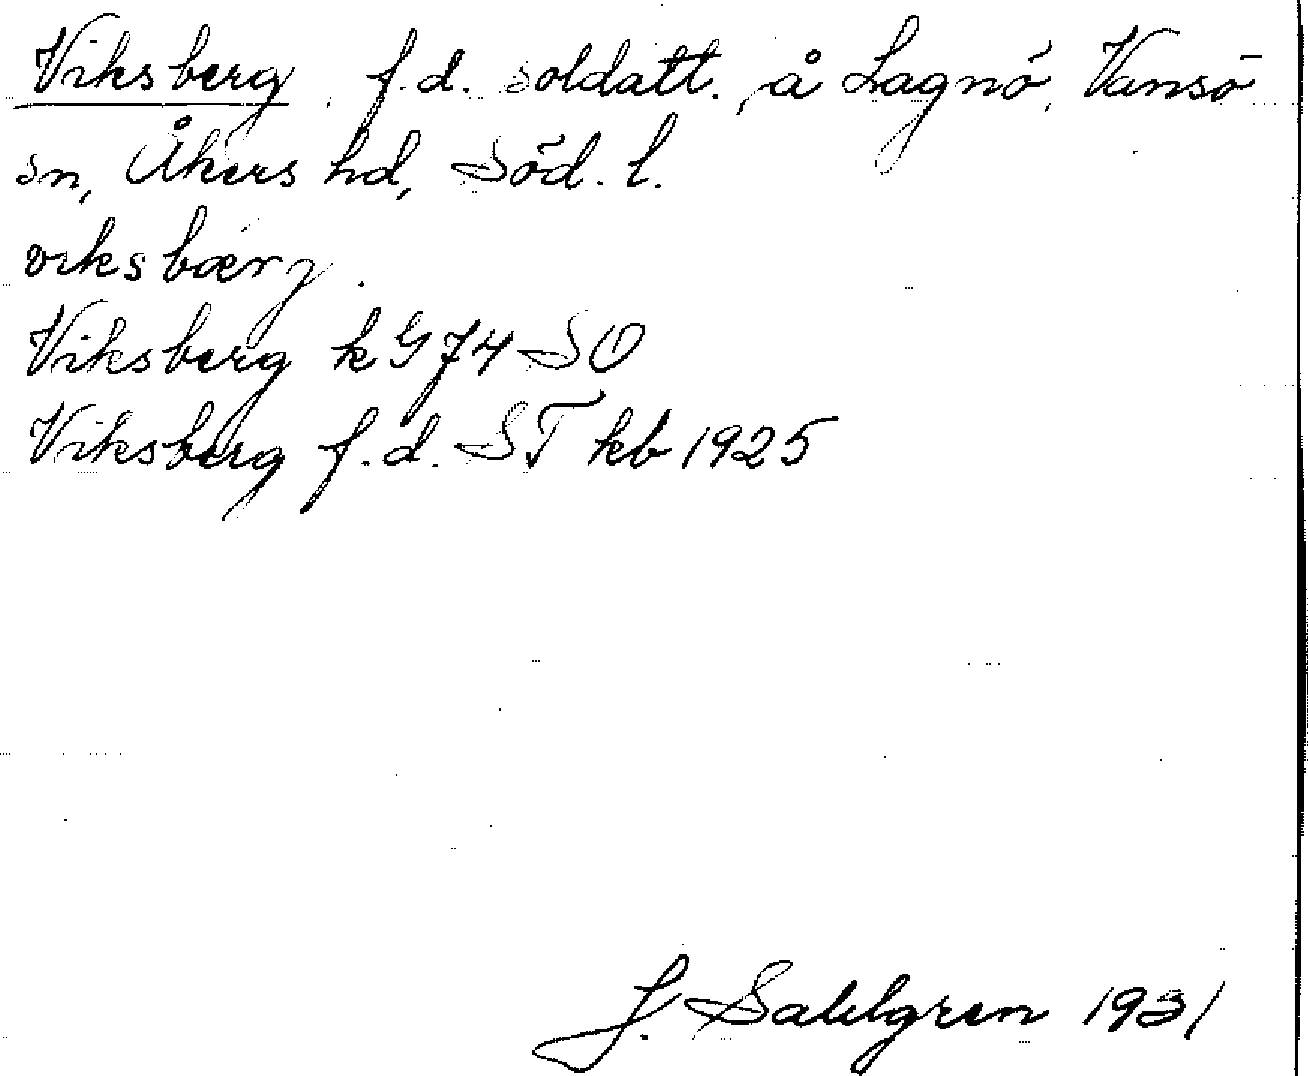 Viksberg, f.d. soldatt., å Lagnö, Vansö
sn, Åkers hd, Söd. l.
viksbærj.
Viksberg k G 74 SO
Viksberg f.d. ST kb 1925
J. Sahlgren 1931